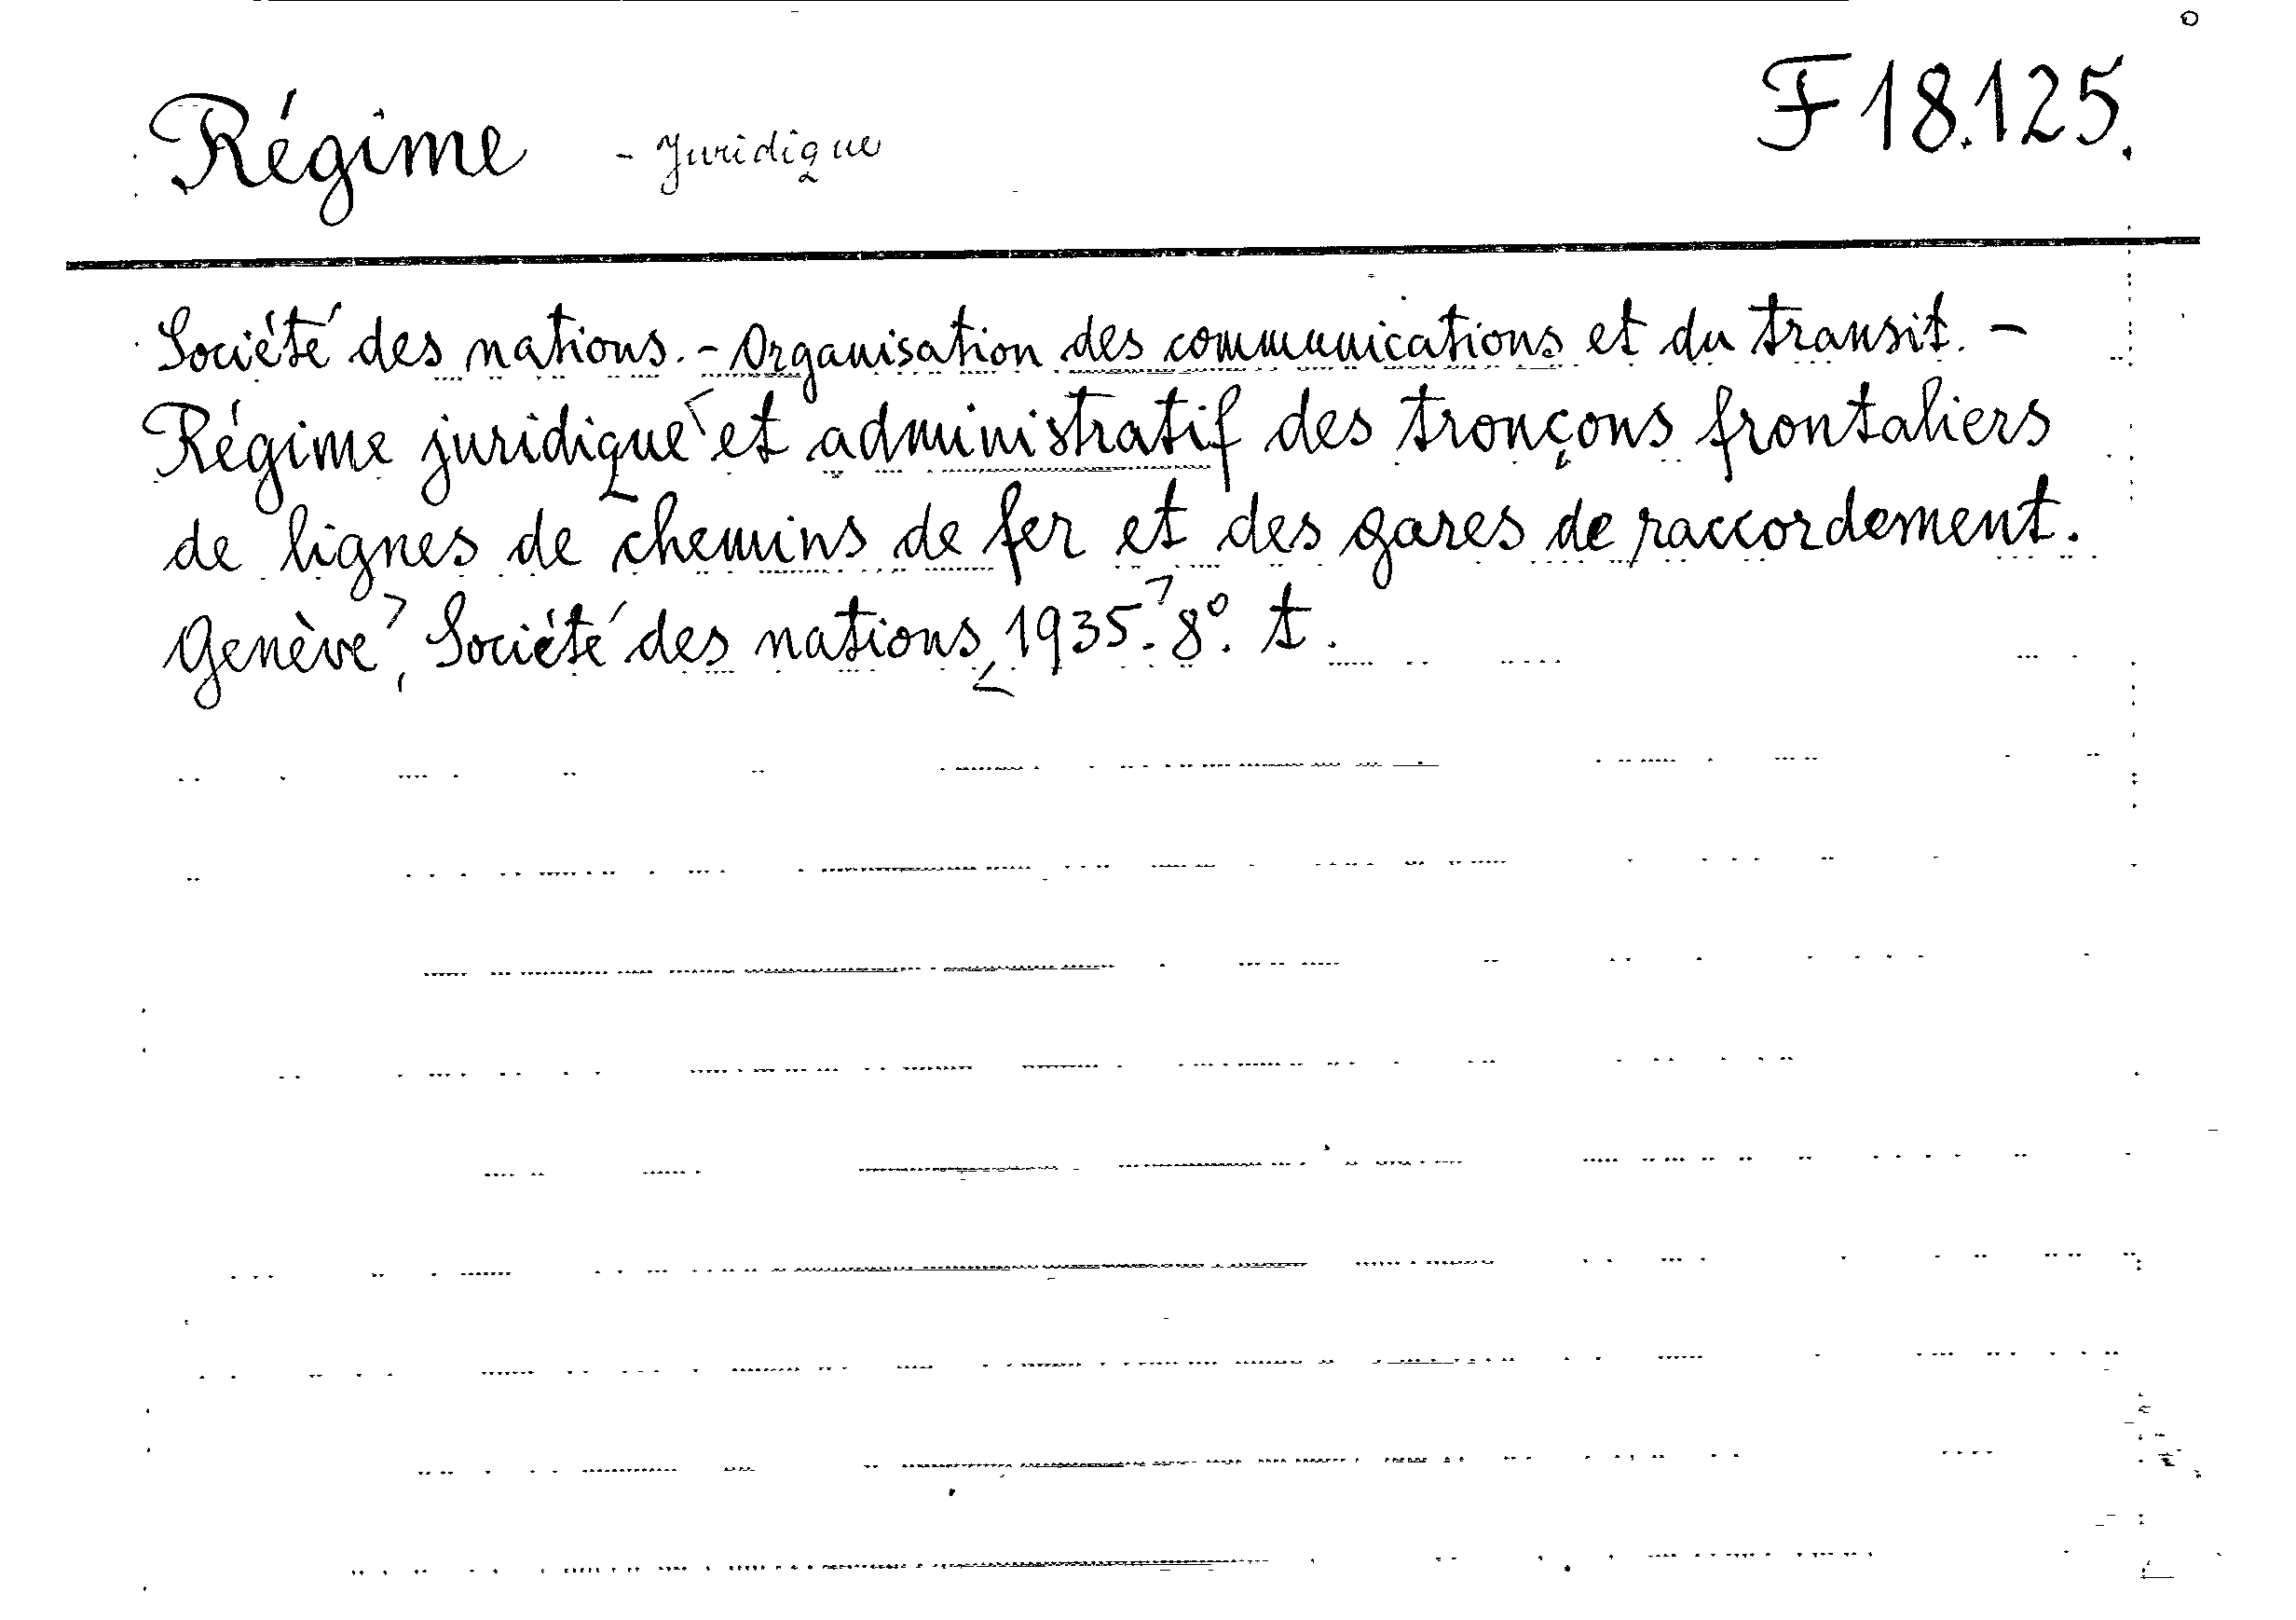 Régime - Juridique F 18.125.
Société des nations. - Organisation des communications et du transit. -
Régime juridique et administratif des tronçons frontaliers
de lignes de chemins de fer et des gares de raccordement.
Genève, Société des nations, 1935. 8º. t.